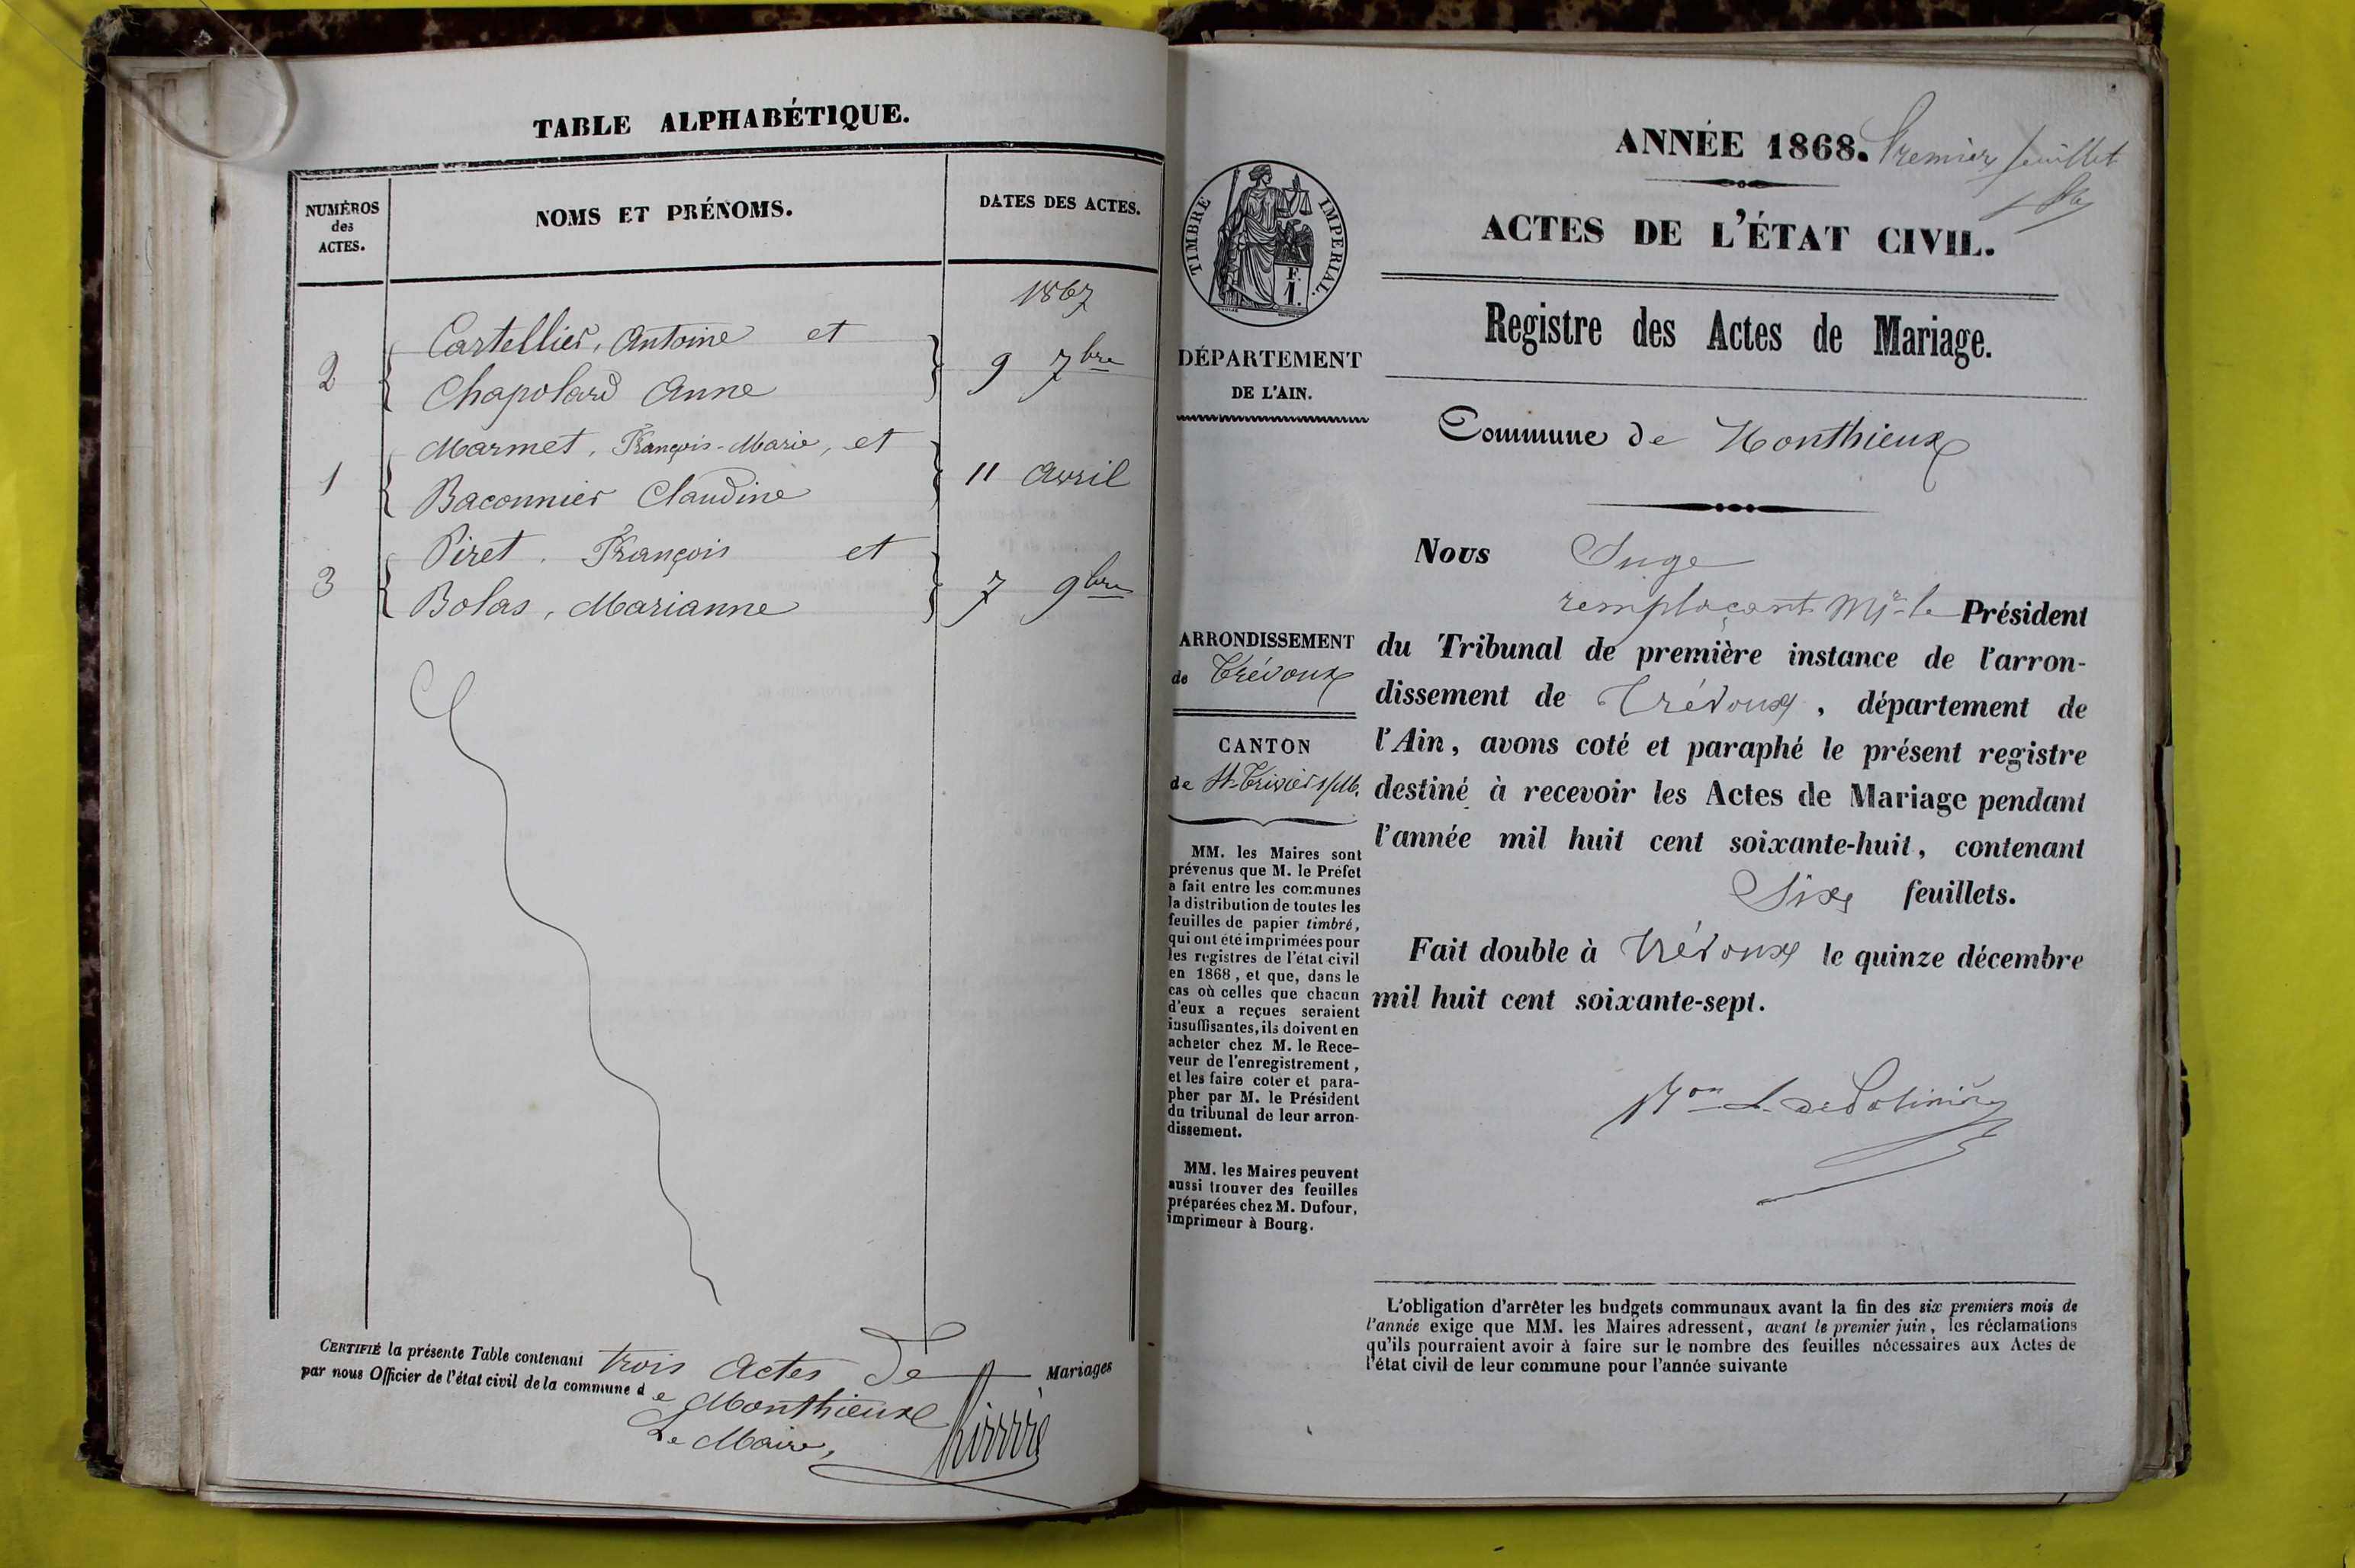 TABLE ALPHABÉTIQUE.
NUMÉROS
des
ACTES.
NOMS ET PRÉNOMS.
DATES DES ACTES.
1867
Cartellier, Antoine et
2 9 7bre
Chapolard Anne
Marmet, François-Marie, et
1 11 Avril
Baconnier Claudine
Piret, François et
3 7 9bre
Bolas, Marianne
CERTIFIÉ la présente Table contenant trois Actes de Mariages
par nous Officier de l'état civil de la commune de Monthieux
Le Maire,
ANNÉE 1868. Premier feuillet
ACTES DE L'ÉTAT CIVIL.
TIMBRE IMPERIAL.
F.
1.
Registre des Actes de Mariage.
DÉPARTEMENT
DE L'AIN.
Commune de Monthieux
Nous Juge
remplaçant Mr le Président
du Tribunal de première instance de l'arron-
dissement de Trévoux, département de
l'Ain, avons coté et paraphé le présent registre
destiné à recevoir les Actes de Mariage pendant
l'année mil huit cent soixante-huit, contenant
Six feuillets.
Fait double à Trévoux le quinze décembre
mil huit cent soixante-sept.
ARRONDISSEMENT
de Trévoux
CANTON
de St-Trivier s/M.
MM. les Maires sont
prévenus que M. le Préfet
a fait entre les communes
la distribution de toutes les
feuilles de papier timbré,
qui ont été imprimées pour
les registres de l'état civil
en 1868, et que, dans le
cas où celles que chacun
d'eux a reçues seraient
insuffisantes, ils doivent en
acheter chez M. le Rece-
veur de l'enregistrement,
et les faire coter et para-
pher par M. le Président
du tribunal de leur arron-
dissement.
MM. les Maires peuvent
aussi trouver des feuilles
préparées chez M. Dufour,
imprimeur à Bourg.
L'obligation d'arrêter les budgets communaux avant la fin des six premiers mois de
l'année exige que MM. les Maires adressent, avant le premier juin, les réclamations
qu'ils pourraient avoir à faire sur le nombre des feuilles nécessaires aux Actes de
l'état civil de leur commune pour l'année suivante